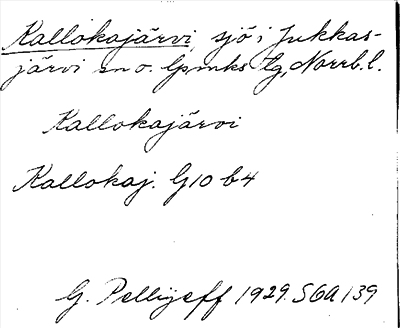 Kallokajärvi, sjö i Jukkas-
järvi sn o. lpmks tg, Norrb. l.
Kallokajärvi
Kallokaj. G10 b4
G. Pellijeff 1929. SGA 139